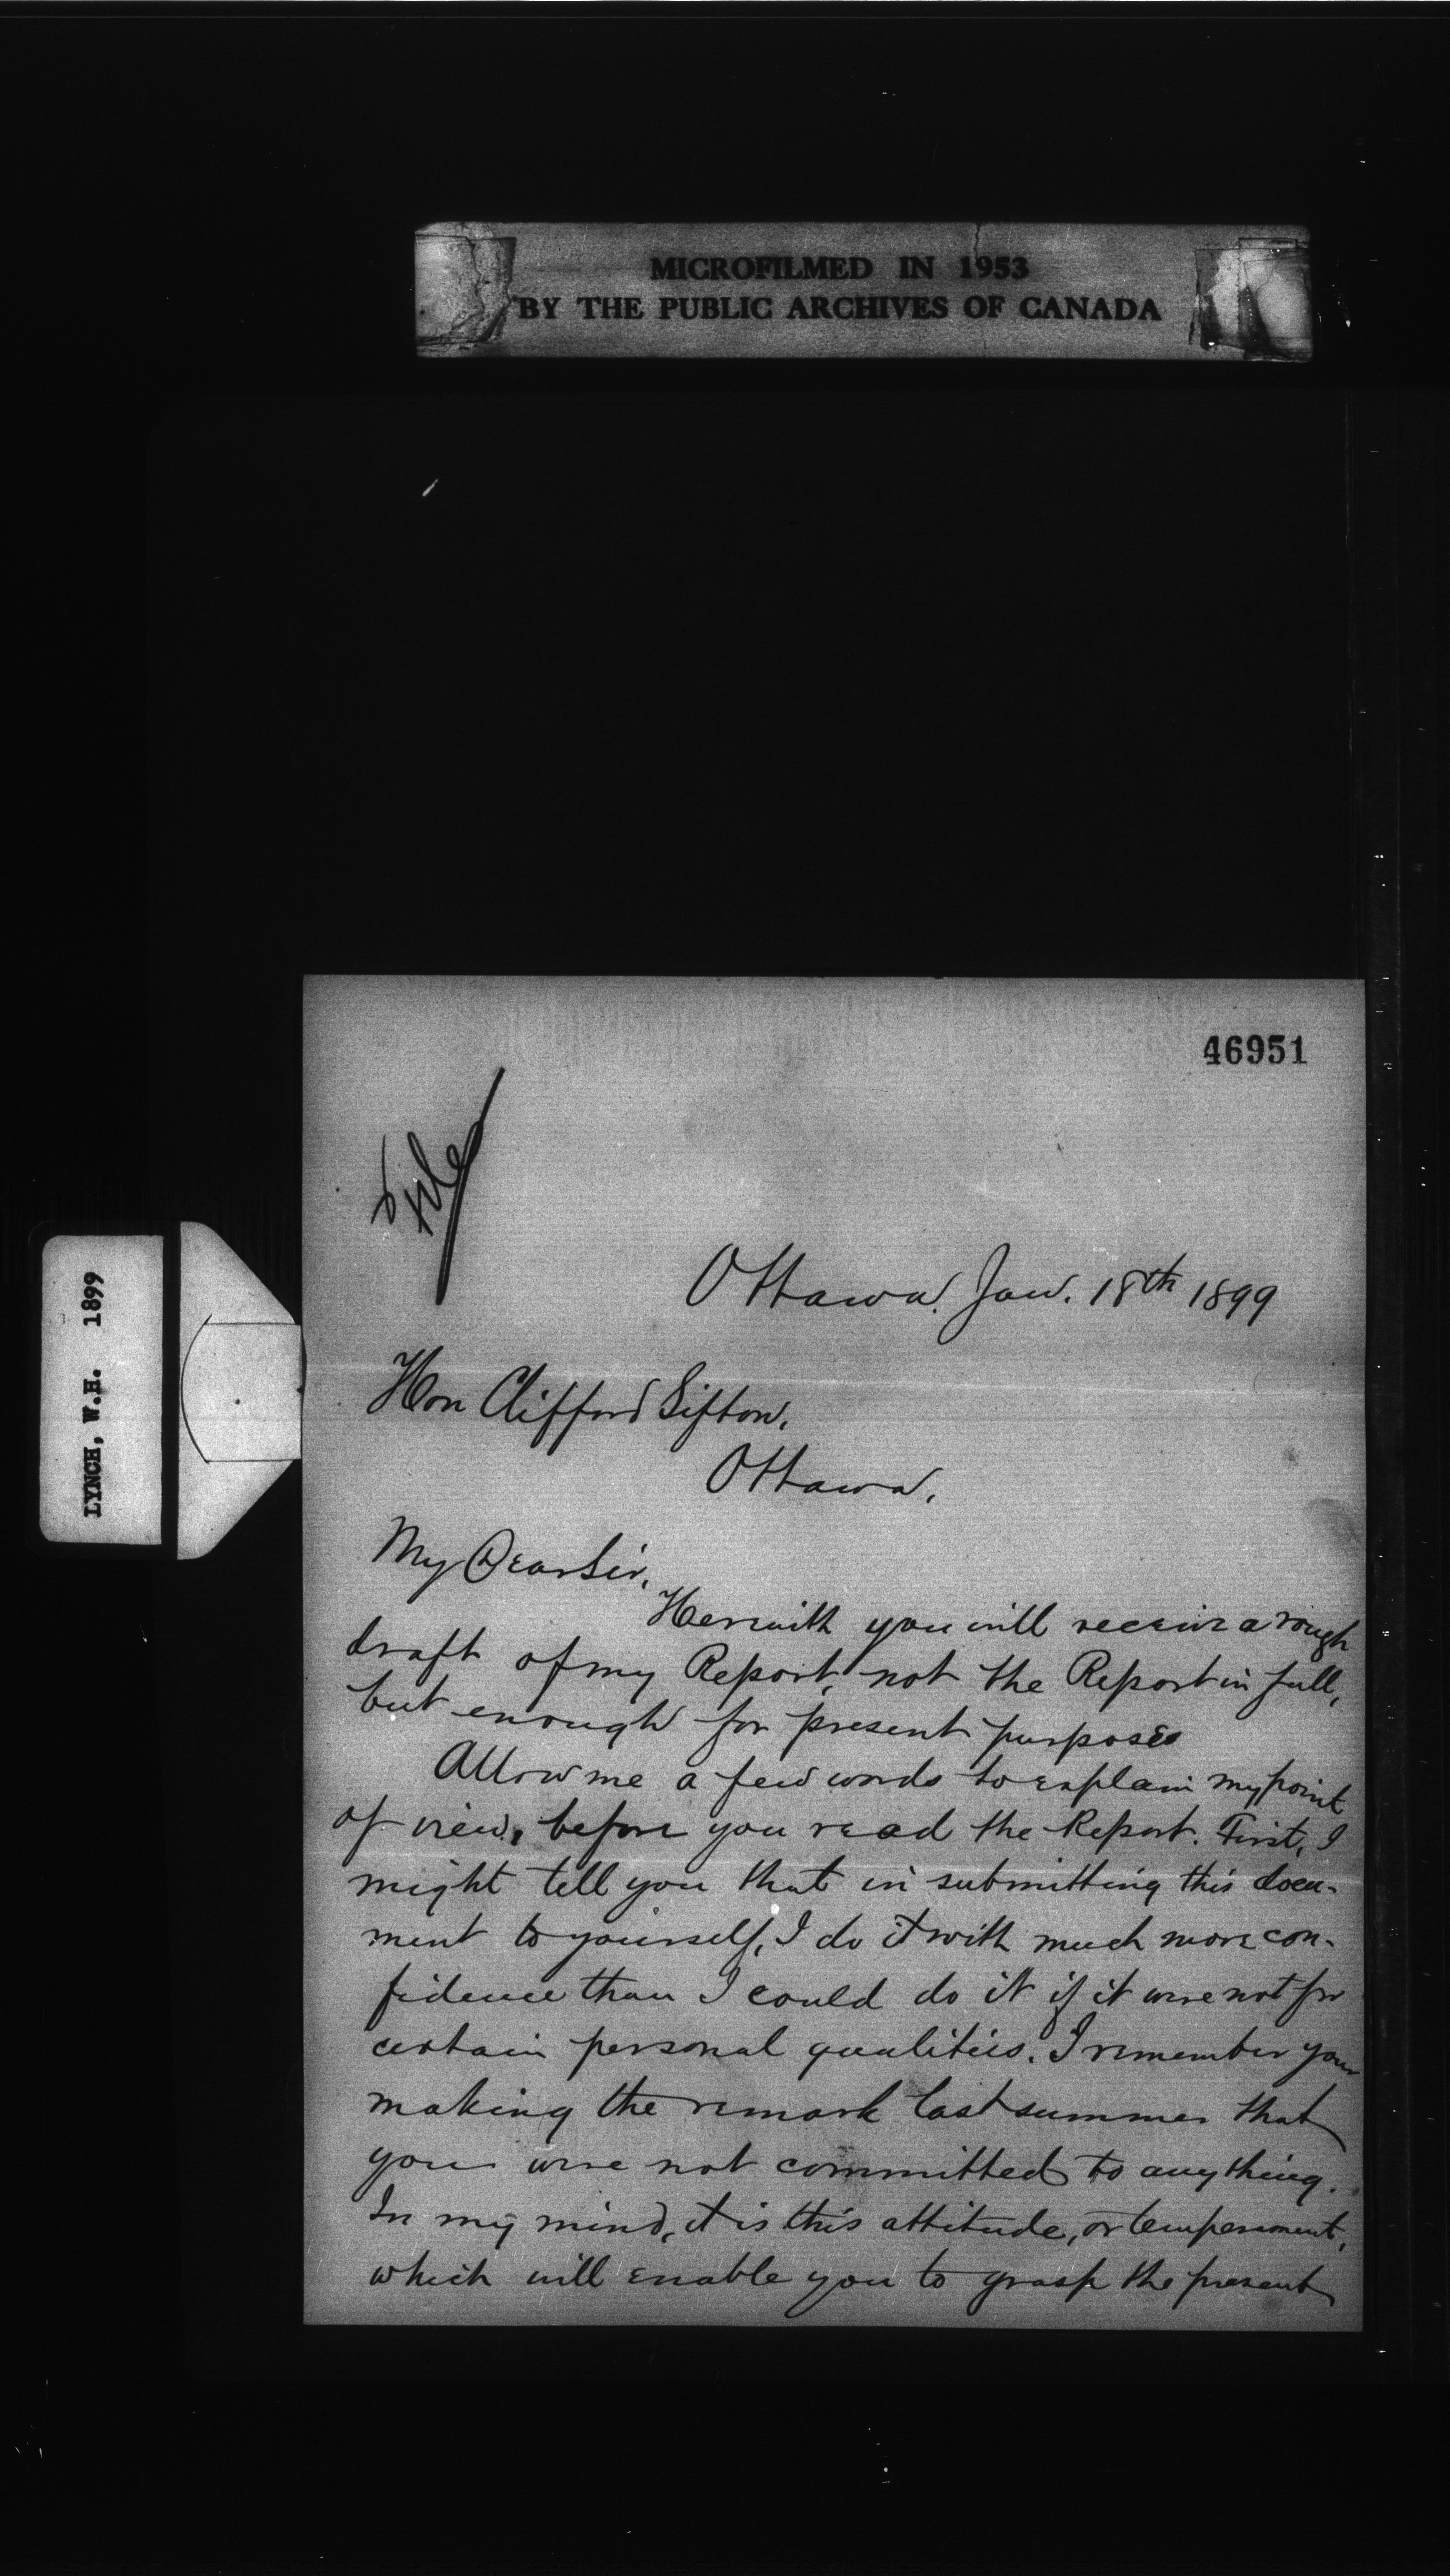 MICROFILMED IN 1953
BY THE PUBLIC ARCHIVES OF CANADA
LYNCH, W.H. 1899
46951
File
Ottawa. Jan. 18th 1899
Hon Clifford Sifton,
Ottawa,
My Dear Sir,
Herewith you will receive a rough
draft of my Report, not the Report in full,
but enough for present purposes
Allow me a few words to explain my point
of view, before you read the Report. First, I
might tell you that in submitting this docu-
ment to yourself, I do it with much more con-
fidence than I could do it if it were not for
certain personal qualities. I remember your
making the remark last summer that
you were not committed to anything.
In my mind, it is this attitude, or temperament,
which will enable you to grasp the present